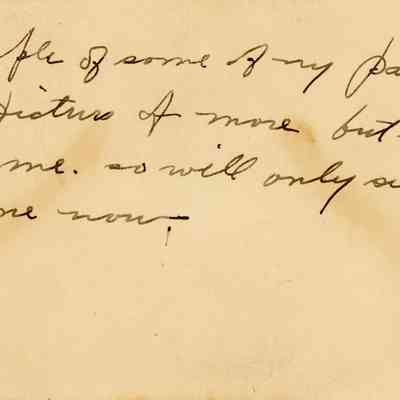 ple of some of my pa
picture of more but
me. so will only se
ne now.